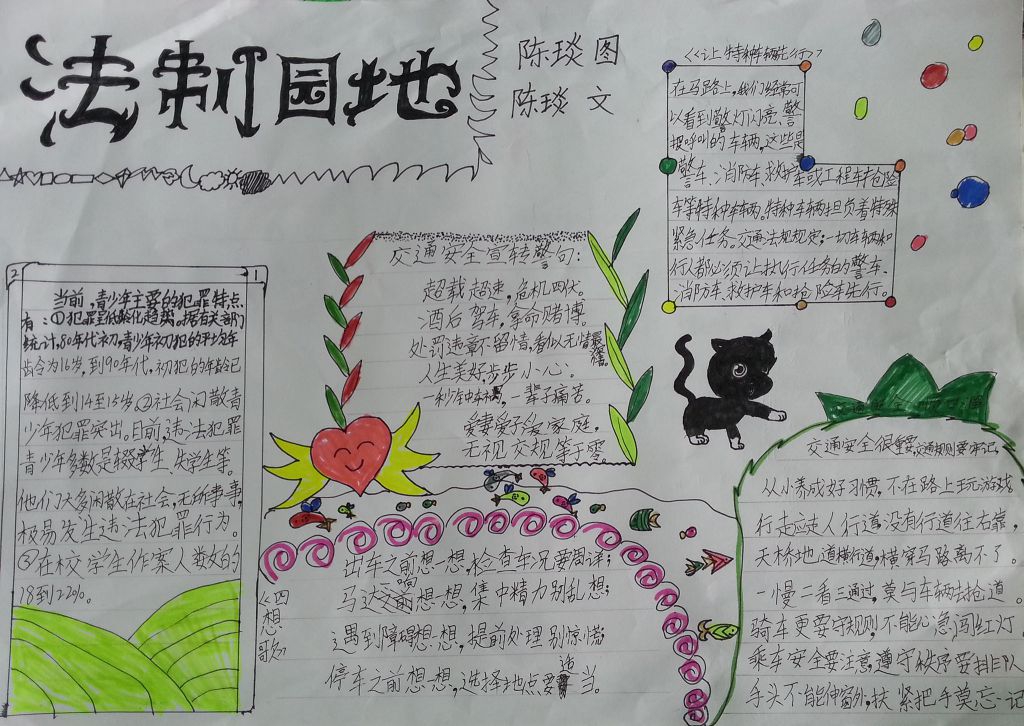 法制园地
陈琰 图
陈琰 文
《让特种车辆先行》
在马路上,我们经常可
以看到警灯闪亮、警
报呼叫的车辆,这些是
警车、消防车、救护车或工程抢险
车等特种车辆。特种车辆担负着特殊
紧急任务。交通法规规定;一切车辆和
行人都必须让执行任务的警车、
消防车、救护车和抢险车先行。
2 1
当前,青少年主要的犯罪特点
有:①犯罪呈低龄化趋势。据有关部门
统计,80年代初,青少年初犯的平均年
齿令为16岁,到90年代,初犯的年龄已
降低到14至15岁。②社会闲散青
少年犯罪突出。目前,违法犯罪
青少年多数是辍学生、失学生等。
他们大多闲散在社会,无所事事,
极易发生违法犯罪行为。
③在校学生作案人数约
18到22%。
交通安全宣转警句:
超载超速,危机四伏。
酒后驾车,拿命赌博。
处罚违章不留情,看似无情最
人生美好步步小心。
一辈子痛苦。
爱妻爱子爱家庭,
无视交规等于零
《四想歌》
出车之前想一想,检查车况要周详;
马达一响想一想,集中精力别乱想;
遇到障碍想一想,提前处理别惊慌;
停车之前想一想,选择地点要适当。
交通安全很重要,交通规则要牢记,
从小养成好习惯,不在路上玩游戏
行走应走人行道,没有行道往右靠,
天桥地道横行道,横穿马路离不了。
一慢二看三通过,莫与车辆去抢道。
骑车更要守规则,不能心急闯红灯
乘车安全要注意,遵守秩序要排队
手头不能伸窗外,扶紧把手莫忘记